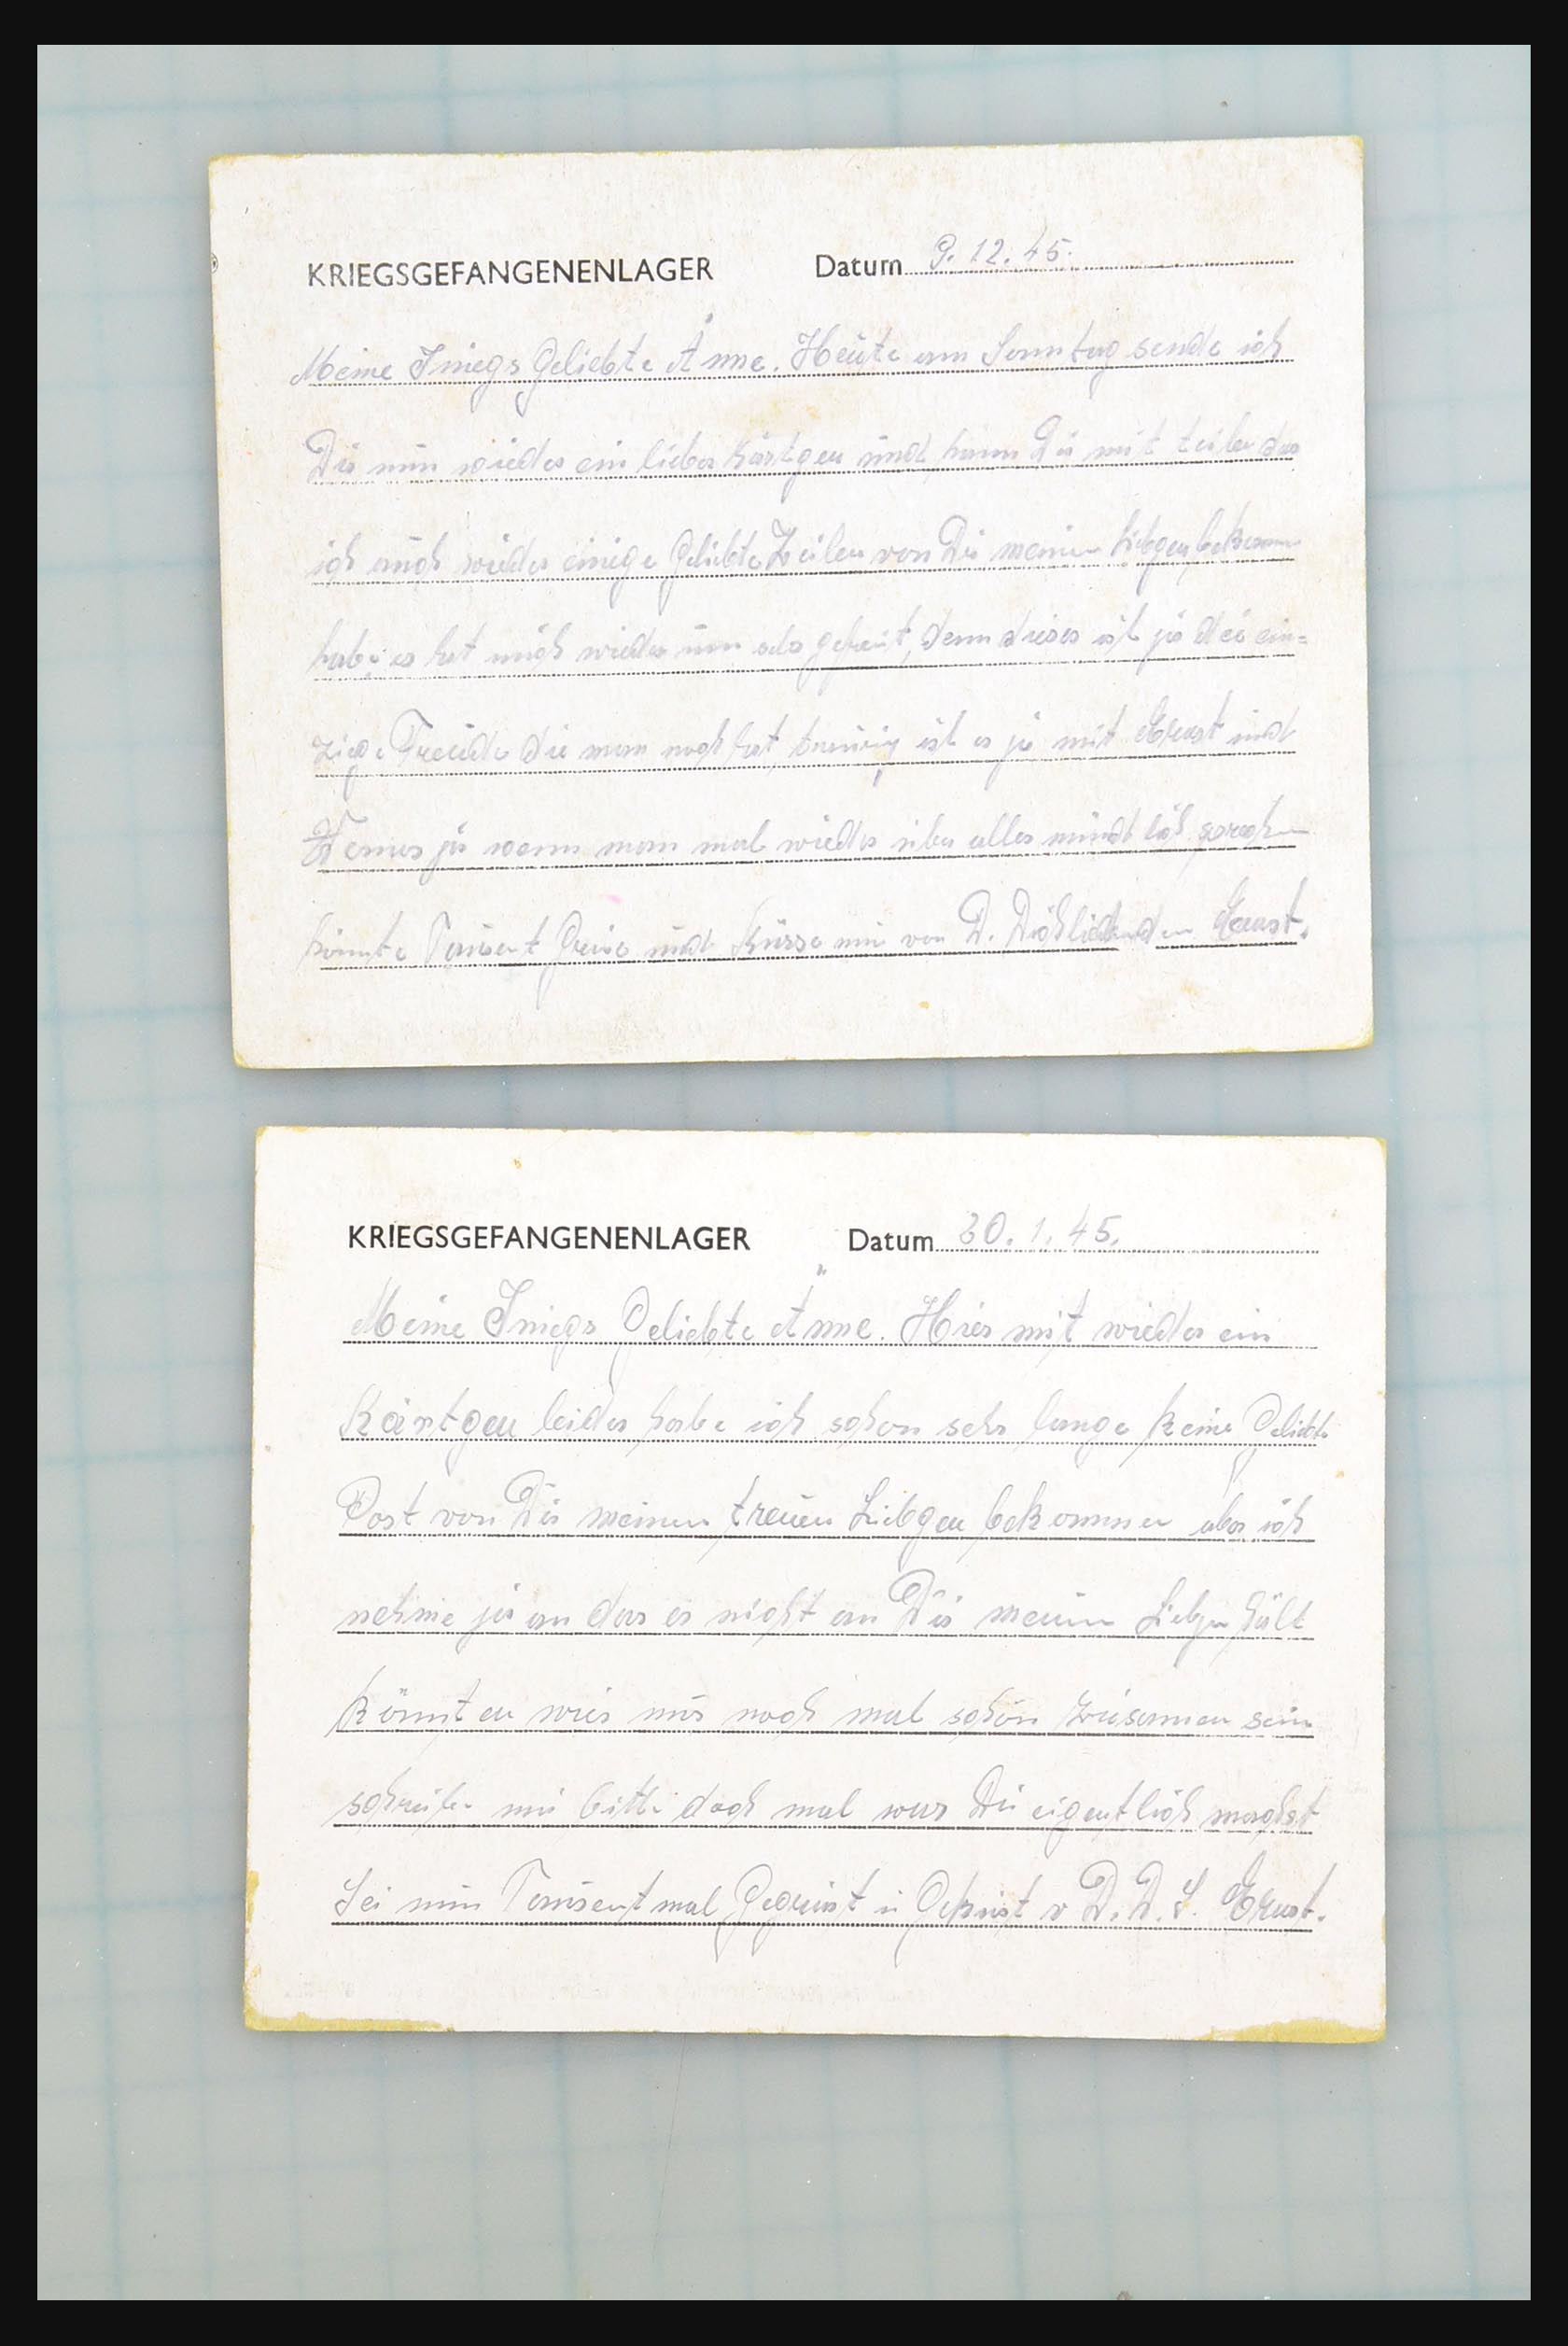 KRIEGSGEFANGENENLAGER Datum 9.12.45.
Meine Iniegs Geliebte Änne. Heute am Sonntag sende ich
Dir nun wieder ein liebes Kärtgen und kann Dir mit teilen das
ich auch wieder einige Geliebte Zeilen von Dir meinen Liebgen bekommen
habe es hat mich wieder gefreut, denn dieses ist ja die ein=
zige Freude die man noch hat, traurig ist es ja mit Ernst und
ja wenn man mal wieder über alles mündlich sprechen
könnte Tausent Grüse und Küsse nun von D. Dichliebenden Ernst.
KRIEGSGEFANGENENLAGER Datum 30.1.45.
Meine Iniegs Geliebte Änne. Hier mit wieder ein
Kärtgen leider habe ich schon sehr lange keine Geliebte
Post von Dir meinen treuen Liebgen bekommen aber ich
nehme ja an das es nicht an Dir meinen Liebgen hält
könnten wir uns noch mal schön zusammen sein
schreibe mir bitte doch mal was Du eigentlich machst
Sei nun Tausent mal Gegrüst u Geküst v D. D. L. Ernst.